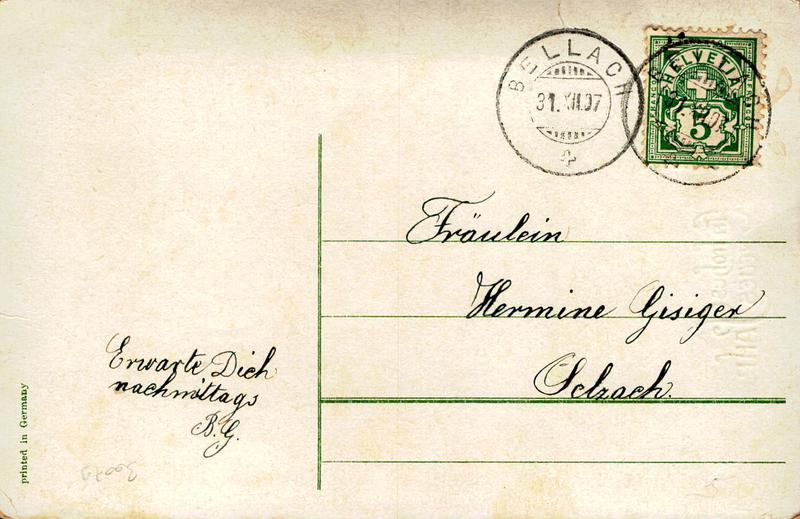 BELLACH
31.XII.07
HELVETIA
5
Fräulein
Hermine Gisiger
Selzach.
Erwarte Dich
nachmittags
B.G.
printed in Germany